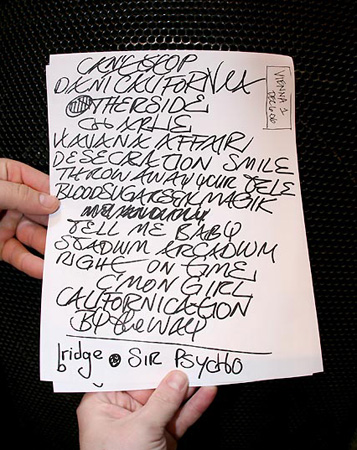 CAN'T STOP
DANI CALIFORNIA
OTHERSIDE
CHARLIE
HAVANA AFFAIR
DESECRATION SMILE
THROW AWAY YOUR TELE
BLOODSUGARSEXMAGIK
TELL ME BABY
STADIUM ARCADIUM
RIGHT ON TIME
C'MON GIRL
CALIFORNICATION
By the WAY
bridge SIR PSYCHO
VIENNA 1